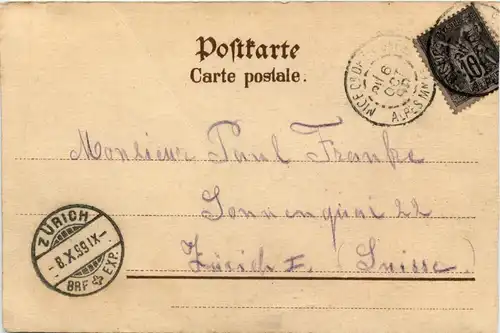 Postkarte
Carte postale.
NICE
ALPES MMES
10
Monsieur Paul Franke
Sonnenquai 22
Zürich I. (Suisse.)
ZÜRICH
-8.X.99.IX-
BRF. EXP.